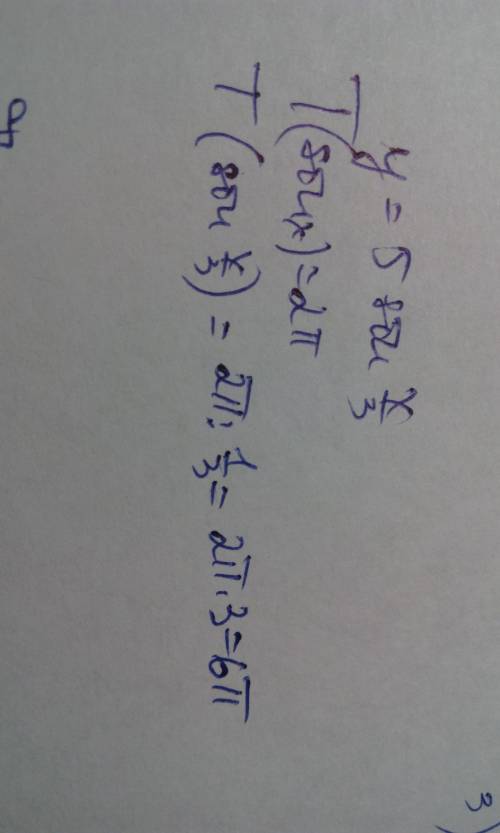 y = 5 sin x/3
T(sin x) = 2π
T(sin x/3) = 2π : 1/3 = 2π · 3 = 6π
3)